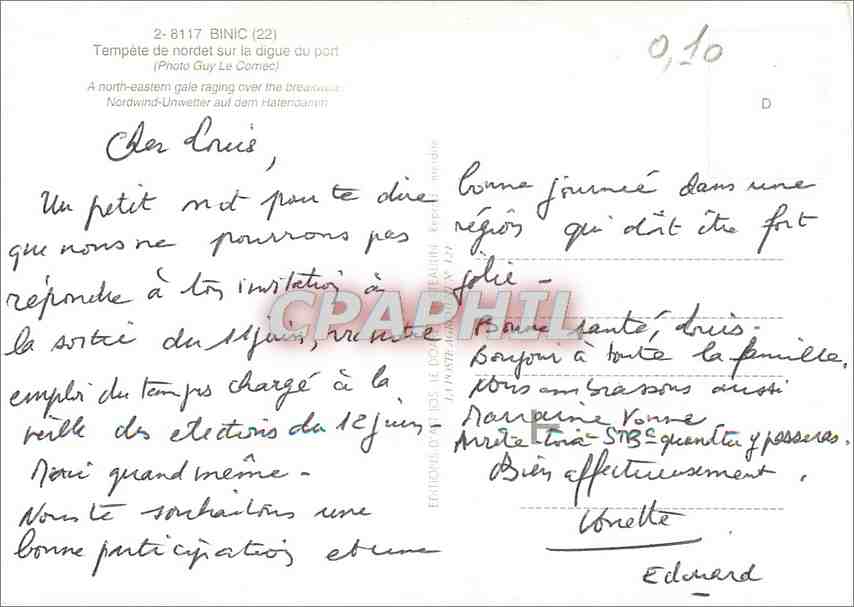 2- 8117 BINIC (22)
Tempête de nordet sur la digue du port
(Photo Guy Le Cornec)
A north-eastern gale raging over the breakwater
Nordwind-Unwetter auf dem Hafendamm
0,10
D
Cher Louis,
Un petit mot pour te dire
que nous ne pourrons pas
répondre à ton invitation à
la sortie du 11 juin, vu notre
emploi du temps chargé à la
veille des élections du 12 juin -
Merci quand même -
Nous te souhaitons une
bonne participation et une
bonne journée dans une
région qui doit être fort
jolie -
Bonne santé, Louis -
Bonjour à toute la famille.
Nous embrassons aussi
Marraine Vonne
Arrête-toi à St Bc quand tu y passeras.
Bien affectueusement.
Vonette
Edouard
EDITIONS D'ART JOS LE DOARÉ CHATEAULIN Reprod. interdite
CPARPHIL